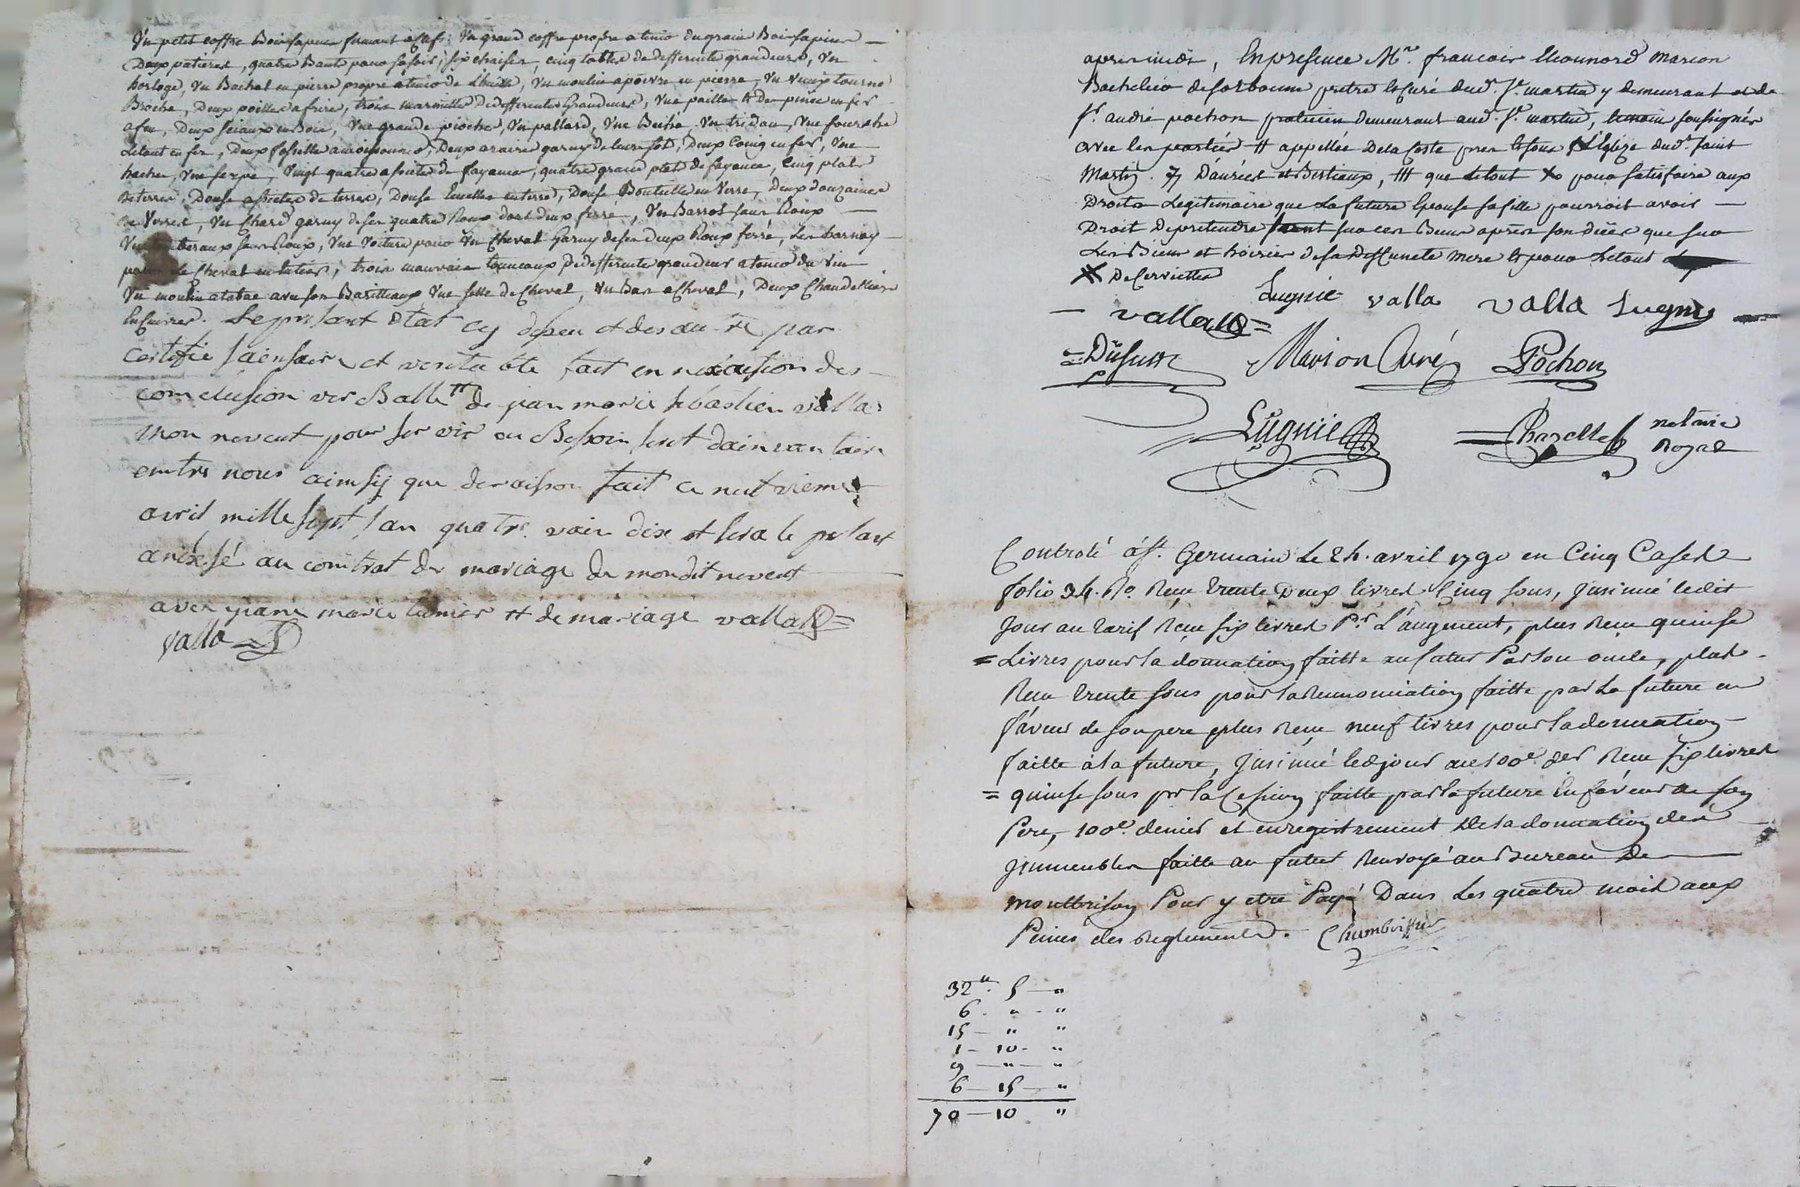 Un petit coffre Bois sapin fermant a clef, Un grand coffre propre a tenir du grain Bois sapin —
Deux petures, quatre Bants pour s'asoir, six chaises, cinq tables de differente grandeurs, Un
horloge, Un Bachat en pierre propre a tenir de Lhuille, Un moulin a poivre en pierre, Un vieux tourne
Broche, Deux poilles a frire, trois marmittes De differentes Grandeurs, Une paille & des pince en fer
Deux seiaux en Bois, Une grande pioche, Un pallard, Une Beche, Un tridan, Une fourche
Le tout en fer, Deux araire garny de leurs fots, Deux Coing en fer, Une
hache, Une serpe, Vingt quatre assiete de fayance, quatre grand plat de fayance, Cinq plats
De terre, Douse assietes de terre, Douse Ecuelles en terre, Douse Bouteille en Verre, Deux douzaines
de Verres, Un Chard garny de ses quatre Roux dont deux ferré, Un Barrot sans Roux —
Une sans Roux, Une Voiture pour Un Cheval Garny de ses Deux Roux ferré, Les harnois
pour Le Cheval trois mauvais tonneaux De differente grandeur a tenir du Vin
Un moulin a tabac avec son Une selle de Cheval, Un Bas a Cheval, Deux Chandelliers
En Cuivre. Le present Etat cy dessu et des autre par
certifie sainsair et veritable fait en nexecusion des
comclusion verBalle de jean marie sebastien valla
mon neveut pour ser vir au Besoin
entre nous ainsy que de raison fait ce neuf vieme
avril mille sept san quatre vain dix et sera le presant
anexsé au contrat de mariage de mondit neveut
avec jeane marie # de mariage valla
valla
après midi, En presence Mr. francois Eleonnord Marion
Bachelier de sorbonne pretre & Curé dud. St. martin y demeurant et de
Sr. andré pochon praticien demeurant aud. St. martin, temoin soussignés
avec les parties # appellée De la Coste pres & sous L'Eglize dud. Saint
Martin. Daurées et Bestiaux, que Le tout pour satisfaire aux
Droits Legitimaire que La future Epouse sa fille pourroit avoir —
Droit De pretendre sur ces Biens apres son dicès que sur
Les Biens et hoirier de sa Deffuncte mere & pour Le tout
De Serviettes
Lugnié valla valla Lugnié
— valla
Marion Curé Pochon
Lugnié Chazelles notaire
Royal
Controlé a St. Germain Le 24. avril 1790 en Cinq Cases
folio 34. Ro. Reçu trente Deux livres Cinq sous, Jnsinué ledit
Jour au tarif Reçu six livres Pr. L'augment, plus Reçu quinse
= Livres pour la donnation faitte au futur Par son oncle, plus
Reçu trente sous pour la Renonciation faitte par La future en
faveur de son pere plus Reçu neuf livres pour la donnation
faitte à la future, Jnsinué led jour au 100e. der Reçu six livres
= quinse sous pr la Cession faitte par la future En faveur de son
Pere, 100e. denier et enregistrement De la donnation des
Jmmeubles faitte au futur Renvoyé au Bureau De
montbrison Pour y etre Payé Dans Les quatre mois aux
Peines des Reglements. Chamboissier
32". 5 — "
6 . " . "
15 — " "
1 — 10 . "
9 — " — "
6 — 15 — "
70 — 10 "